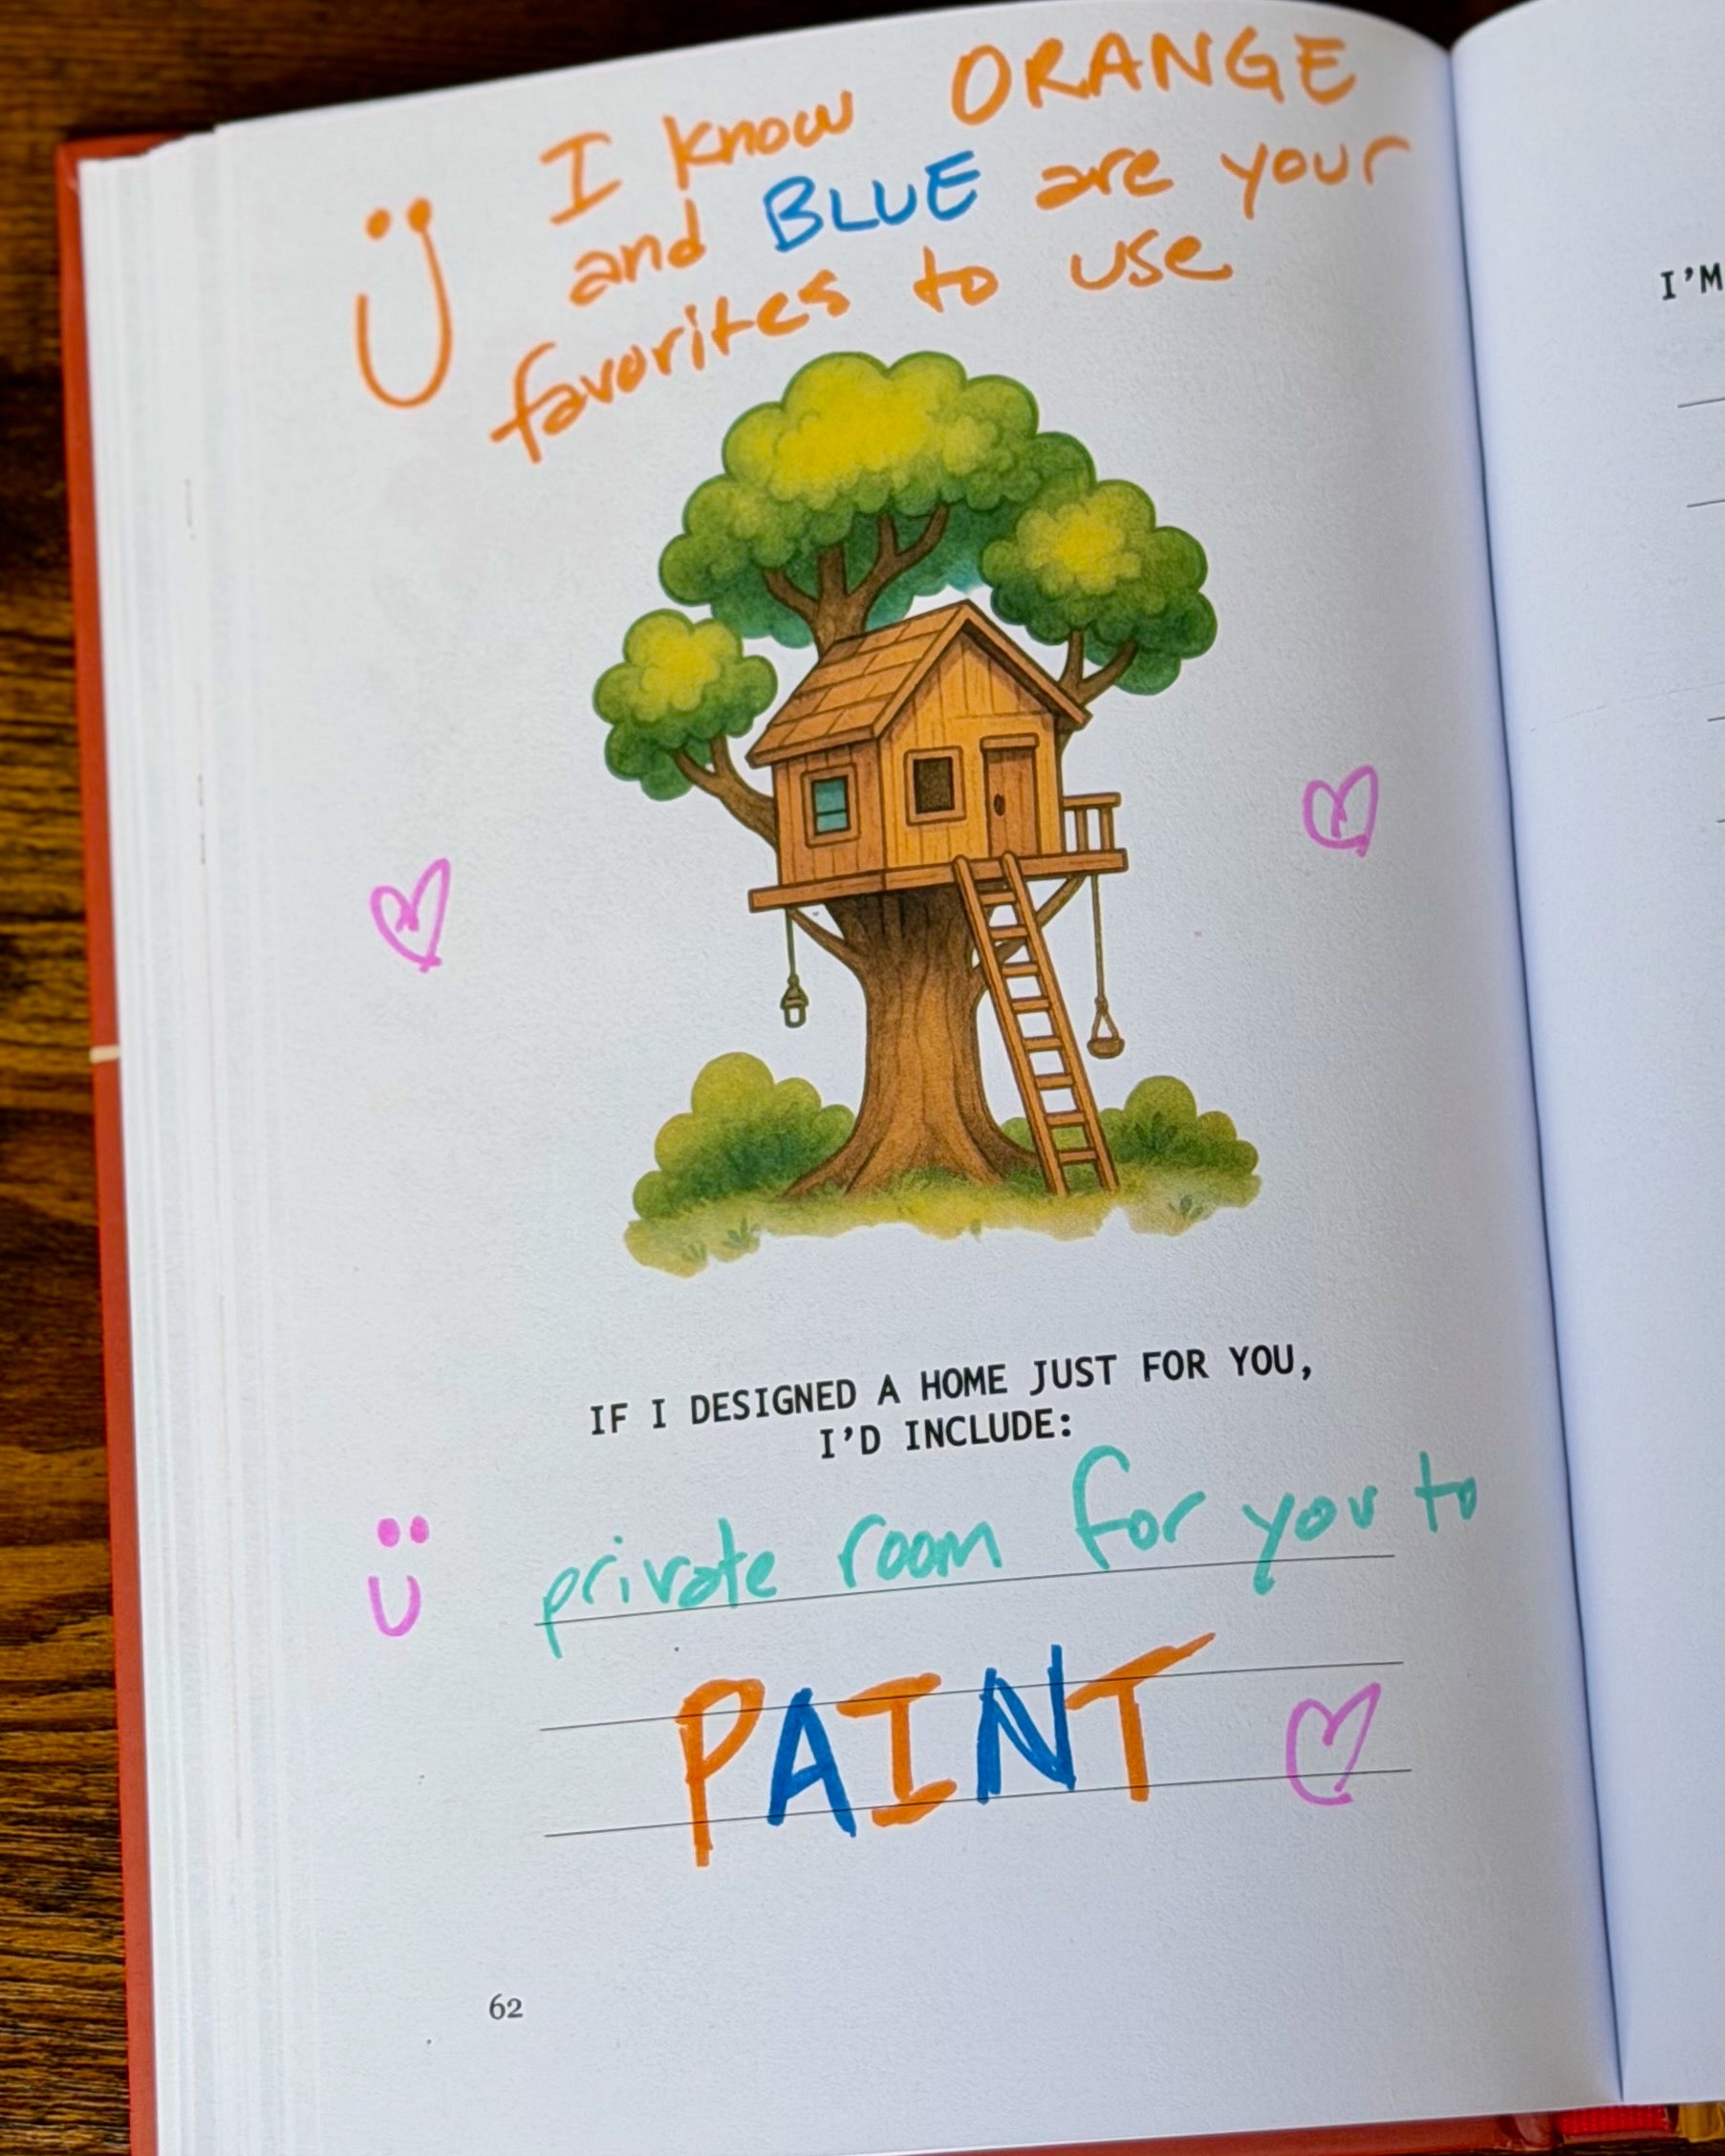 I know ORANGE
and BLUE are your
favorites to use
IF I DESIGNED A HOME JUST FOR YOU,
I'D INCLUDE:
private room for you to
PAINT
62
I'M